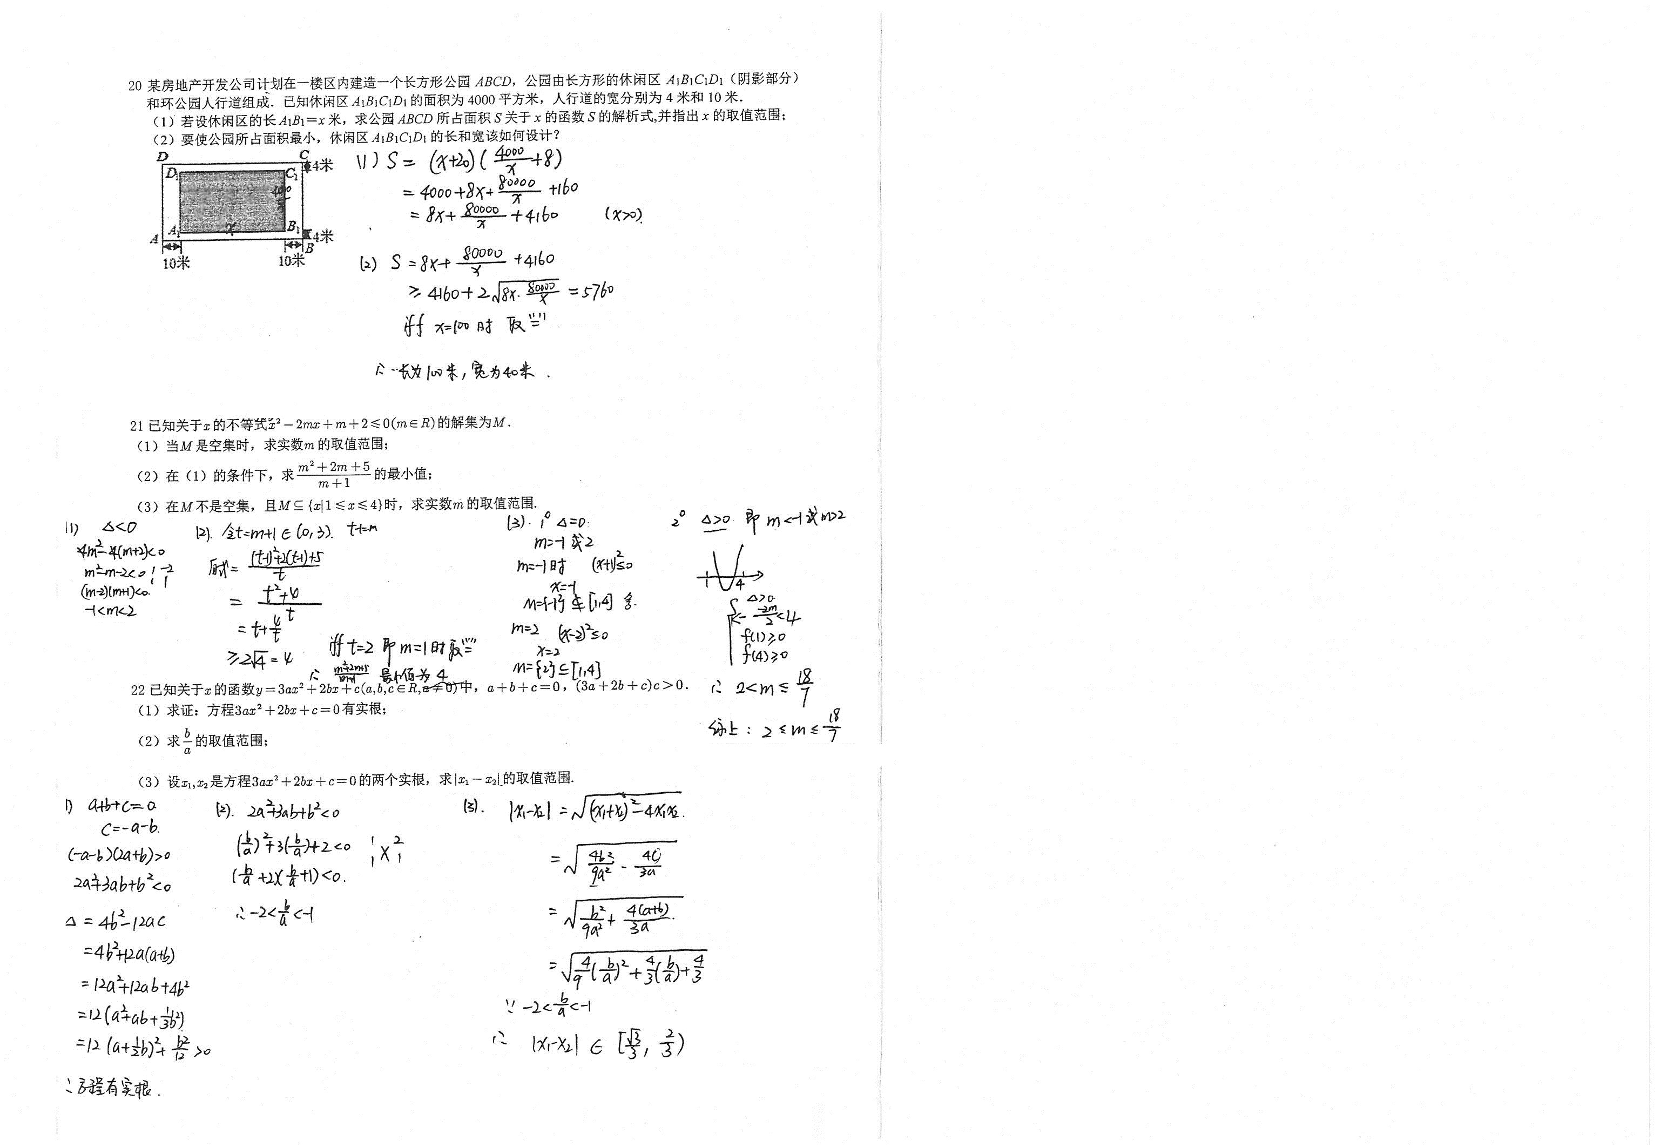 20 某房地产开发公司计划在一楼区内建造一个长方形公园 ABCD，公园由长方形的休闲区 A₁B₁C₁D₁（阴影部分）
和环公园人行道组成．已知休闲区 A₁B₁C₁D₁ 的面积为 4000 平方米，人行道的宽分别为 4 米和 10 米．
（1）若设休闲区的长 A₁B₁=x 米，求公园 ABCD 所占面积 S 关于 x 的函数 S 的解析式,并指出 x 的取值范围；
（2）要使公园所占面积最小，休闲区 A₁B₁C₁D₁ 的长和宽该如何设计？
D C 4米
D₁ C₁
x
A A₁ B₁ B 4米
10米 10米
(1) S = (x+20)(4000/x+8)
= 4000+8x+80000/x+160
= 8x+80000/x+4160 (x>0)
(2) S=8x+80000/x+4160
≥ 4160+2√(8x·80000/x) = 5760
iff x=100 时 取"="
∴ 长为100米，宽为40米．
21 已知关于x的不等式x²－2mx＋m＋2≤0(m∈R)的解集为M．
（1）当M是空集时，求实数m的取值范围；
（2）在（1）的条件下，求(m²+2m+5)/(m+1)的最小值；
（3）在M不是空集，且M⊆{x|1≤x≤4}时，求实数m的取值范围．
(1) Δ<0
4m²-4(m+2)<0
m²-m-2<0
(m-2)(m+1)<0
-1<m<2
(2). 令t=m+1∈(0,3).
原式= ((t-1)²+2(t-1)+5)/t
= (t²+4)/t
= t+4/t
≥2√4=4
iff t=2 即 m=1时取"="
∴ (m²+2m+5)/(m+1) 最小值为 4
(3). 1° Δ=0
m=-1 或2
m=-1时 (x+1)²≤0
x=-1
M={-1}⊈[1,4] 舍.
m=2 (x-2)²≤0
x=2
M={2}⊆[1,4]
2° Δ>0 即 m<-1或m>2
1 4
Δ>0
1<-(-2m)/2<4
f(1)≥0
f(4)≥0
∴ 2<m≤18/7
综上：2≤m≤18/7
22 已知关于x的函数y=3ax²+2bx+c(a,b,c∈R,a≠0)中，a+b+c=0，(3a+2b+c)c>0．
（1）求证：方程3ax²+2bx+c=0有实根；
（2）求b/a的取值范围；
（3）设x₁,x₂是方程3ax²+2bx+c=0的两个实根，求|x₁－x₂|的取值范围．
1) a+b+c=0
c=-a-b.
(-a-b)(2a+b)>0
2a²+3ab+b²<0
Δ=4b²-12ac
=4b²+12a(a+b)
=12a²+12ab+4b²
=12(a²+ab+1/3b²)
=12(a+1/2b)²+b²/12>0
∴方程有实根．
(2). 2a²+3ab+b²<0
(b/a)²+3(b/a)+2<0
(b/a+2)(b/a+1)<0.
∴-2<b/a<-1
1 2
1 1
(3). |x₁-x₂|=√((x₁+x₂)²-4x₁x₂)
=√(4b²/9a² - 4c/3a)
=√(b²/9a² + 4(a+b)/3a)
=√(4/9(b/a)²+4/3(b/a)+4/3)
∵ -2<b/a<-1
∴ |x₁-x₂|∈[√3/3, 2/3)